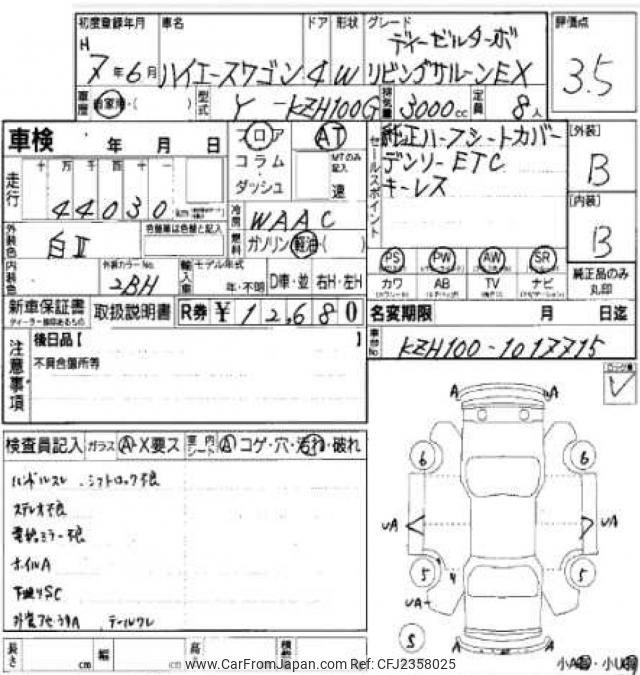 初度登録年月 車名 ドア 形状 グレード 評価点
H ディーゼルターボ
7年6月 ハイエースワゴン 4 W リビングサルーンEX 3.5
車歴 自家用・( ) 型式 Y-KZH100G 排気量 3000cc 定員 8人
車検 年 月 日 フロア AT 純正ハーフシートカバー [外装]
コラム MTのみ記入 デンソーETC B
ダッシュ 速 キーレス
セールスポイント
走行 十 万 千 百 十 一
44030 km
冷房 WAAC [内装]
燃料 ガソリン・軽油・( ) B
外装色 白Ⅱ 色替車は色替と記入
PS PW AW SR 純正品のみ丸印
カワ AB TV ナビ
内装色 外装カラーNo. 2BH 輸入車 モデル年式 年・不明 D車・並 右H・左H
新車保証書 取扱説明書 R券 ¥12,680 名変期限 月 日迄
ディーラー捺印あるもの
車台No KZH100-1017715
注意事項 後日品【 】
不具合箇所等
検査員記入 ガラス A・X要ス 車内シート A コゲ・穴・汚れ・破れ
ハンドルスレ シフトロック不良
ステレオ不良
電格ミラー不良
ホイルA
下廻りSC
テールワレ
A A
6 6
UA UA
5 5
4
UA
S
A A
長さ cm 幅 cm 高さ
小A・小U
www.CarFromJapan.com Ref: CFJ2358025